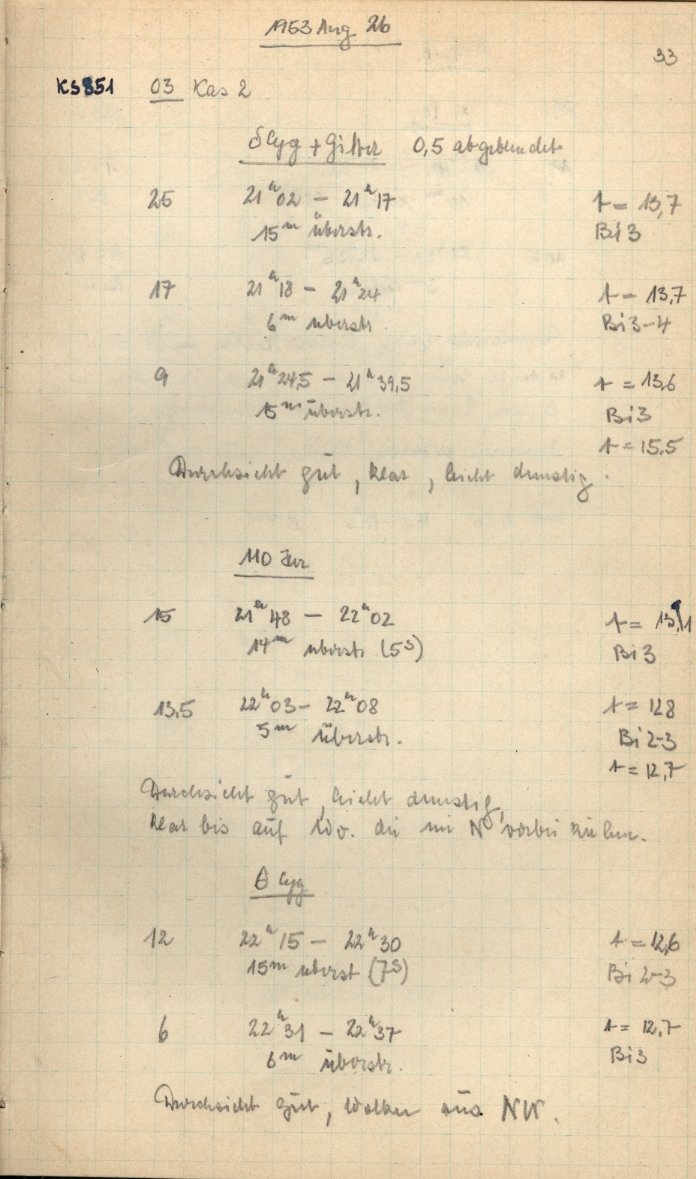 1953 Aug 26
33
KS851 03 Kas 2
δ Cyg + Gitter 0,5 abgeblendet
25 21ʰ02 – 21ʰ17 t = 13,7
15ᵐ überstr. Bi 3
17 21ʰ18 – 21ʰ24 t = 13,7
6ᵐ überstr. Bi 3-4
9 21ʰ24,5 – 21ʰ39,5 t = 13,6
15ᵐ überstr. Bi 3
t = 15,5
Durchsicht gut, klar, leicht dunstig.
110 Her
15 21ʰ48 – 22ʰ02 t =
14ᵐ überstr. (5ˢ) Bi 3
13,5 22ʰ03 – 22ʰ08 t = 12,8
5ᵐ überstr. Bi 2-3
t = 12,7
Durchsicht gut, leicht dunstig,
klar bis auf die im N vorbei ziehen.
θ Cyg
12 22ʰ15 – 22ʰ30 t = 12,6
15ᵐ überst (7ˢ) Bi 2-3
6 22ʰ31 – 22ʰ37 t = 12,7
6ᵐ überstr. Bi 3
Durchsicht gut, Wolken aus NW.